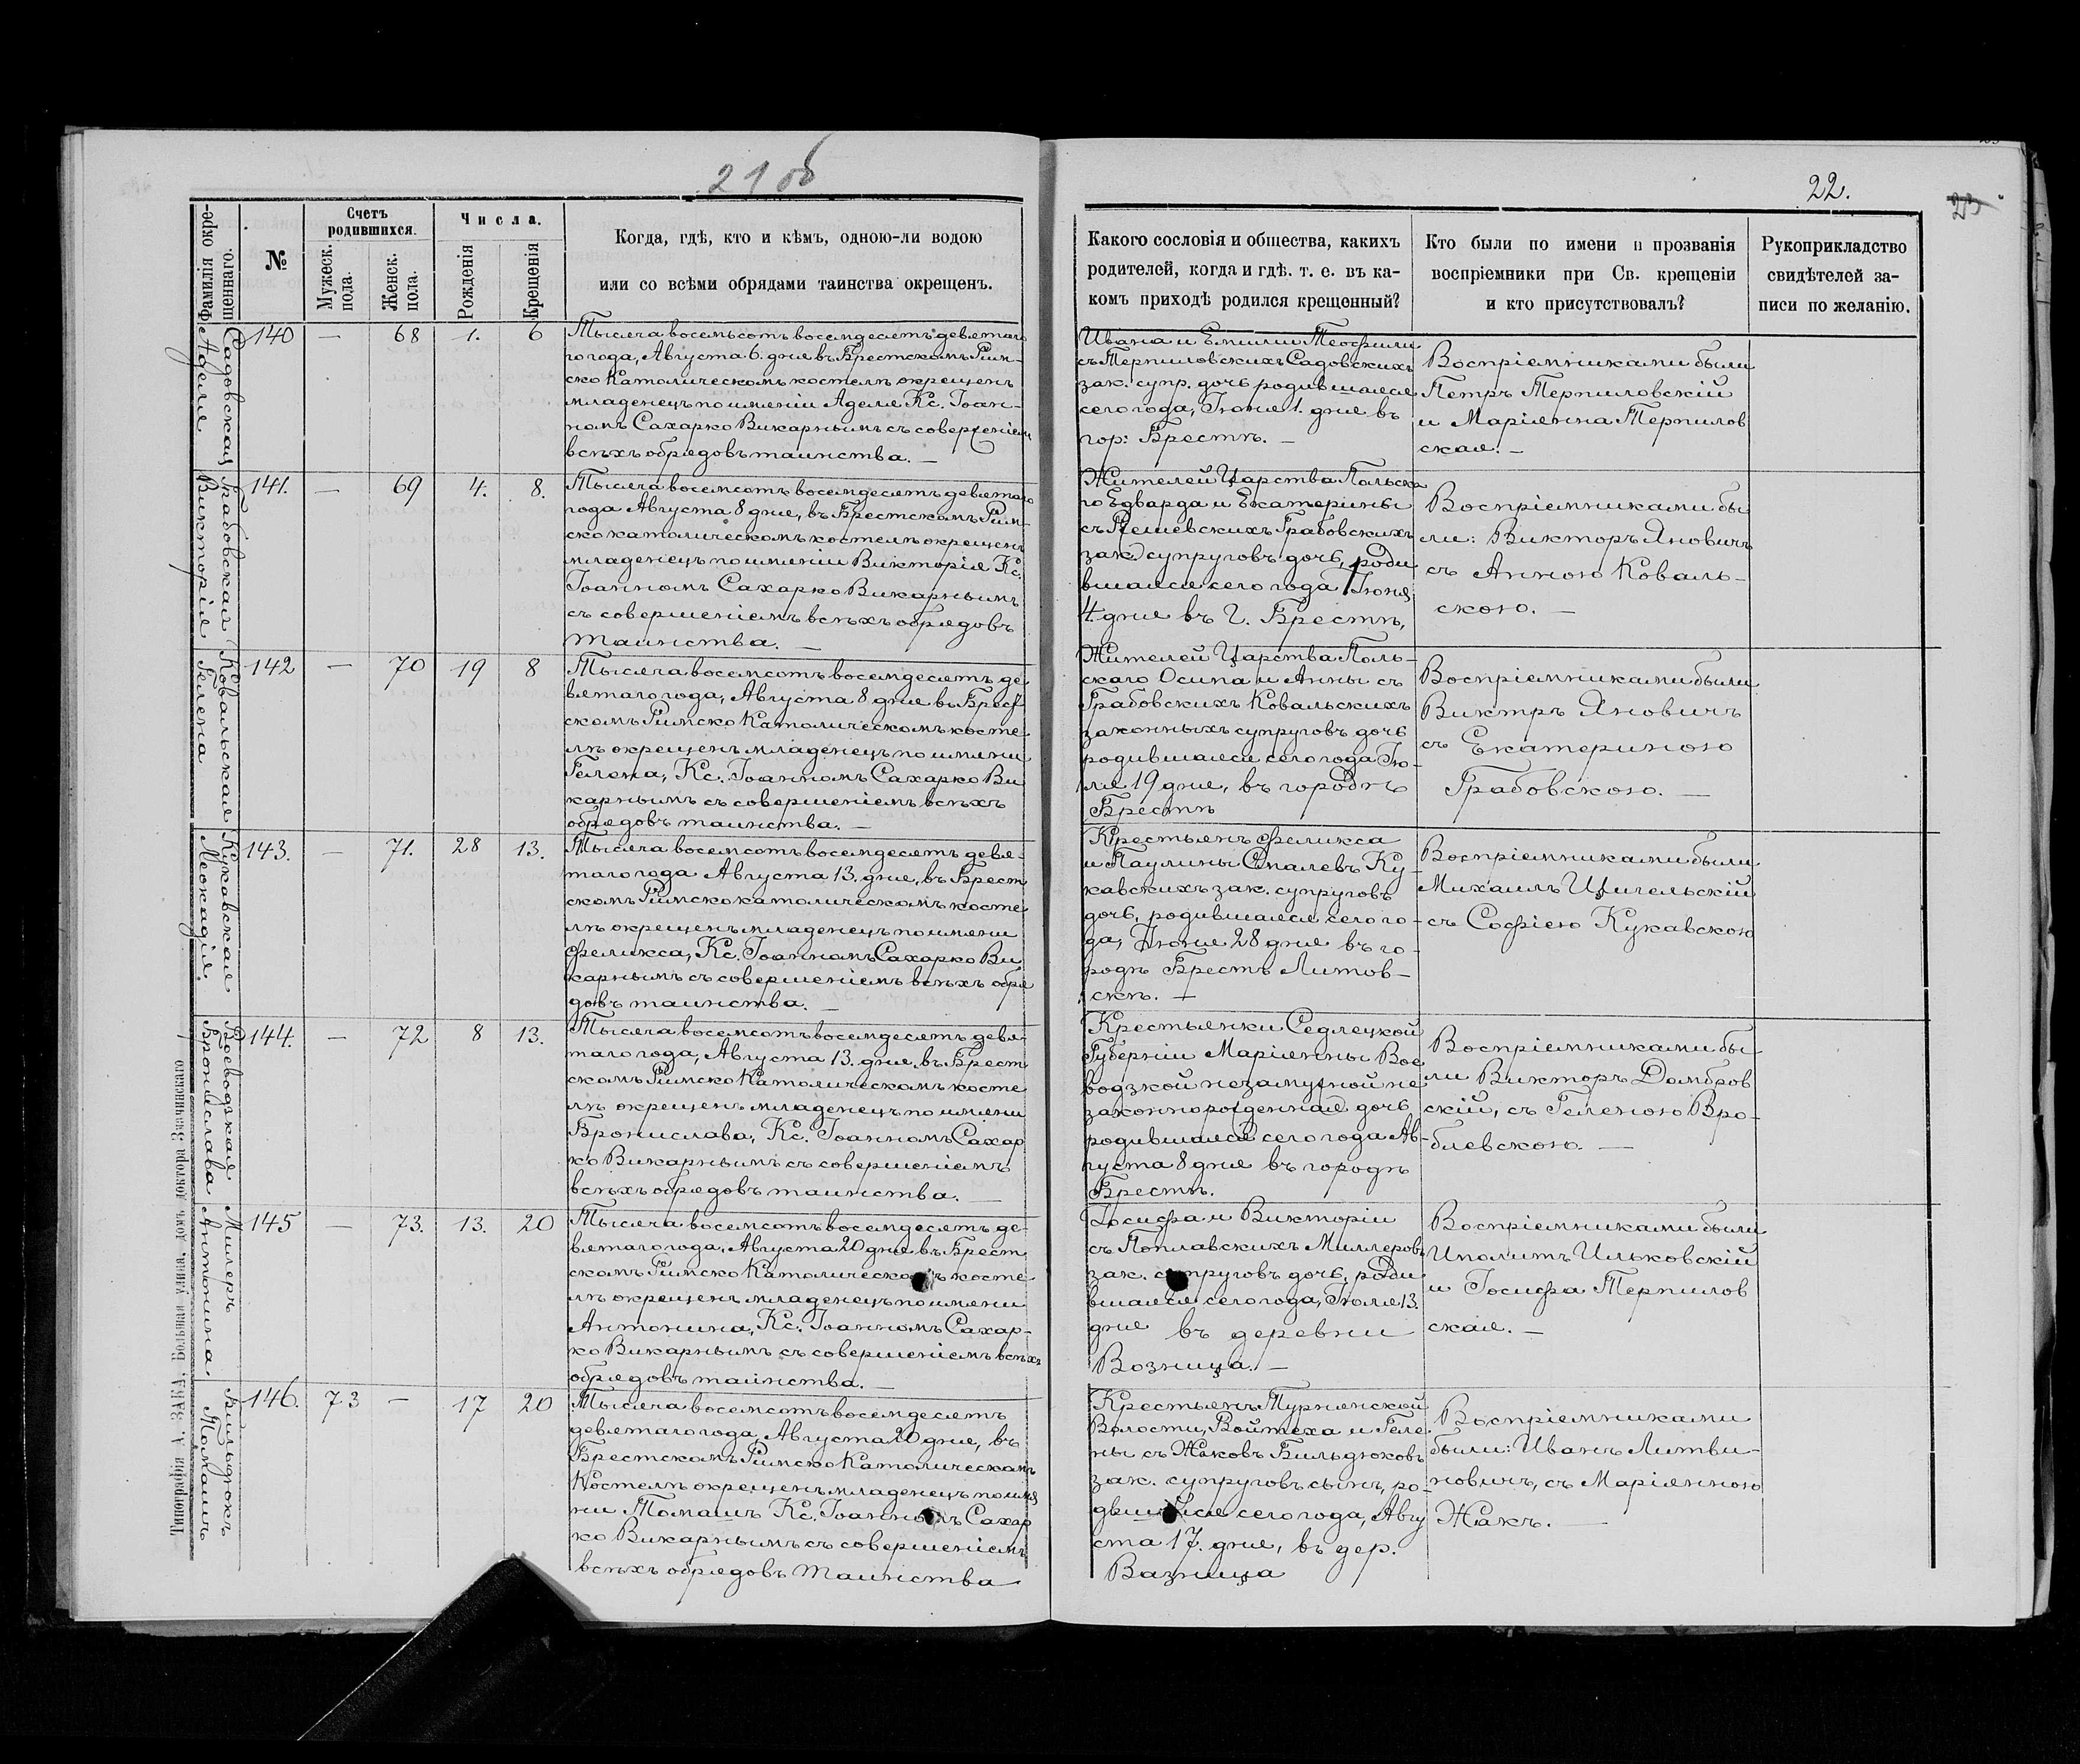 21 об
22.
23
Фамилія окре-
щеннаго.
№
Счетъ
родившихся.
Мужеск.
пола.
Женск.
пола.
Числа.
Рожденія
Крещенія
Когда, гдѣ, кто и кѣмъ, одною-ли водою
или со всѣми обрядами таинства окрещенъ.
Какого сословія и общества, какихъ
родителей, когда и гдѣ. т. е. въ ка-
комъ приходѣ родился крещенный?
Кто были по имени и прозванія
воспріемники при Св. крещеніи
и кто присутствовалъ?
Рукоприкладство
свидѣтелей за-
писи по желанію.
Садовская
Аделя
140 — 68 1. 6
Тысяча восемьсотъ восемдесятъ девятаго
го года, Августа 6. дня въ Брестскомъ Рим-
ско Католическомъ костелѣ окрещенъ
младенецъ по имени Аделя Кс. Іоан-
номъ Сахарко Викарнымъ съ совершеніем
всѣхъ обрядовъ таинства. —
Ивана и Емиліи Теофили
съ Терпиловскихъ Садовскихъ
зак. супр. дочь родившаяся
сего года, Іюня 1. дня въ
гор: Брестѣ. —
Воспріемниками были
Петръ Терпиловскій
и Маріянна Терпилов
ская. —
Грабовская
Викторія
141. — 69 4. 8.
Тысяча восемсотъ восемдесятъ девятаго
года Августа 8 дня, въ Брестскомъ Рим-
ско католическомъ костелѣ окрещенъ
младенецъ по имени Викторія Кс.
Іоанномъ Сахарко Викарнымъ
съ совершеніемъ всѣхъ обрядовъ
таинства. —
Жителей Царства Польска
го Едварда и Екатерины
съ Решевскихъ Грабовскихъ
зак. супруговъ дочь, роди
вшаяся сего года Іюня
4. дня въ Г. Брестѣ,
Воспріемниками бы
ли: Викторъ Яновичъ
съ Анною Коваль-
скою. —
Ковальская
Гелена
142 — 70 19 8
Тысяча восемсотъ восемдесятъ де
вятаго года, Августа 8 дня въ Брест
скомъ Римско Католическомъ косте
лѣ окрещенъ младенецъ по имени
Гелена, Кс. Іоанномъ Сахарко Ви
карнымъ съ совершеніемъ всѣхъ
обрядовъ таинства. —
Жителей Царства Поль-
скаго Осипа и Анны съ
Грабовскихъ Ковальскихъ
законныхъ супруговъ дочь
родившаяся сего года Ію-
ля 19 дня, въ городѣ
Брестѣ
Воспріемниками были
Виктръ Яновичъ
съ Екатериною
Грабовскою. —
Кукавская
Леокадія.
143. — 71. 28 13.
Тысяча восемсотъ восемдесятъ девя-
таго года Августа 13. дня, въ Брест
скомъ Римско католическомъ косте
лѣ окрещенъ младенецъ по имени
Феликса, Кс. Іоанномъ Сахарко Ви
карнымъ съ совершеніемъ всѣхъ обря
довъ таинства. —
Крестьянъ Феликса
и Паулины Спалевъ Ку-
кавскихъ зак. супруговъ
дочь, родившаяся сего го-
да, Іюня 28 дня въ го-
родѣ Брестъ Литов-
скѣ. —
Воспріемниками были
Михаилъ Цигельскій
съ Софіею Кукавскою
Воеводзкая
Бронислава
144. — 72 8 13.
Тысяча восемсотъ восемдесятъ девя-
таго года, Августа 13. дня, въ Брест
скомъ Римско Католическомъ косте
лѣ окрещенъ младенецъ по имени
Бронислава, Кс. Іоанномъ Сахар
ко Викарнымъ съ совершеніемъ
всѣхъ обрядовъ таинства. —
Крестьянки Седлецкой
Губерніи Маріянны Вое
водзкой незамужной не
законнорожденная дочь
родившаяся сего года Ав-
густа 8 дня въ городѣ
Брестѣ.
Воспріемниками бы
ли Викторъ Домбров
скій, съ Геленою Вро-
блевскою. —
Милеръ
Антонина.
145 — 73. 13. 20
Тысяча восемсотъ восемдесятъ де-
вятаго года, Августа 20 дня въ Брест
скомъ Римско Католическомъ косте-
лѣ окрещенъ младенецъ по имени
Антонина, Кс. Іоанномъ Сахар-
ко Викарнымъ съ совершеніемъ всѣхъ
обрядовъ таинства. —
Іосифа и Викторіи
съ Поплавскихъ Миллеровъ
зак. супруговъ дочь, роди
вшаяся сего года, Іюля 13.
дня въ деревни
Возница. —
Воспріемниками были
Иполитъ Ильковскій
и Іосифа Терпилов
ская. —
Бильдюкъ
Томашъ
146. 73 — 17 20
Тысяча восемсотъ восемдесятъ
девятаго года, Августа 20 дня, въ
Брестскомъ Римско Католическомъ
Костелѣ окрещенъ младенецъ по имя
ни Томашъ Кс. Іоанномъ Сахар
ко Викарнымъ съ совершеніемъ
всѣхъ обрядовъ таинства
Крестьянъ Турнянской
Волости, Войтеха и Геле
ны съ Жаковъ Бильдюковъ
зак. супруговъ сынъ, ро-
дившійся сего года, Авгу
ста 17. дня, въ дер.
Вазница
Воспріемниками
были: Иванъ Литви-
новичъ, съ Маріянною
Жакъ. —
Типографія А. ЗАКА, Большая улица, домъ доктора Заянковскаго